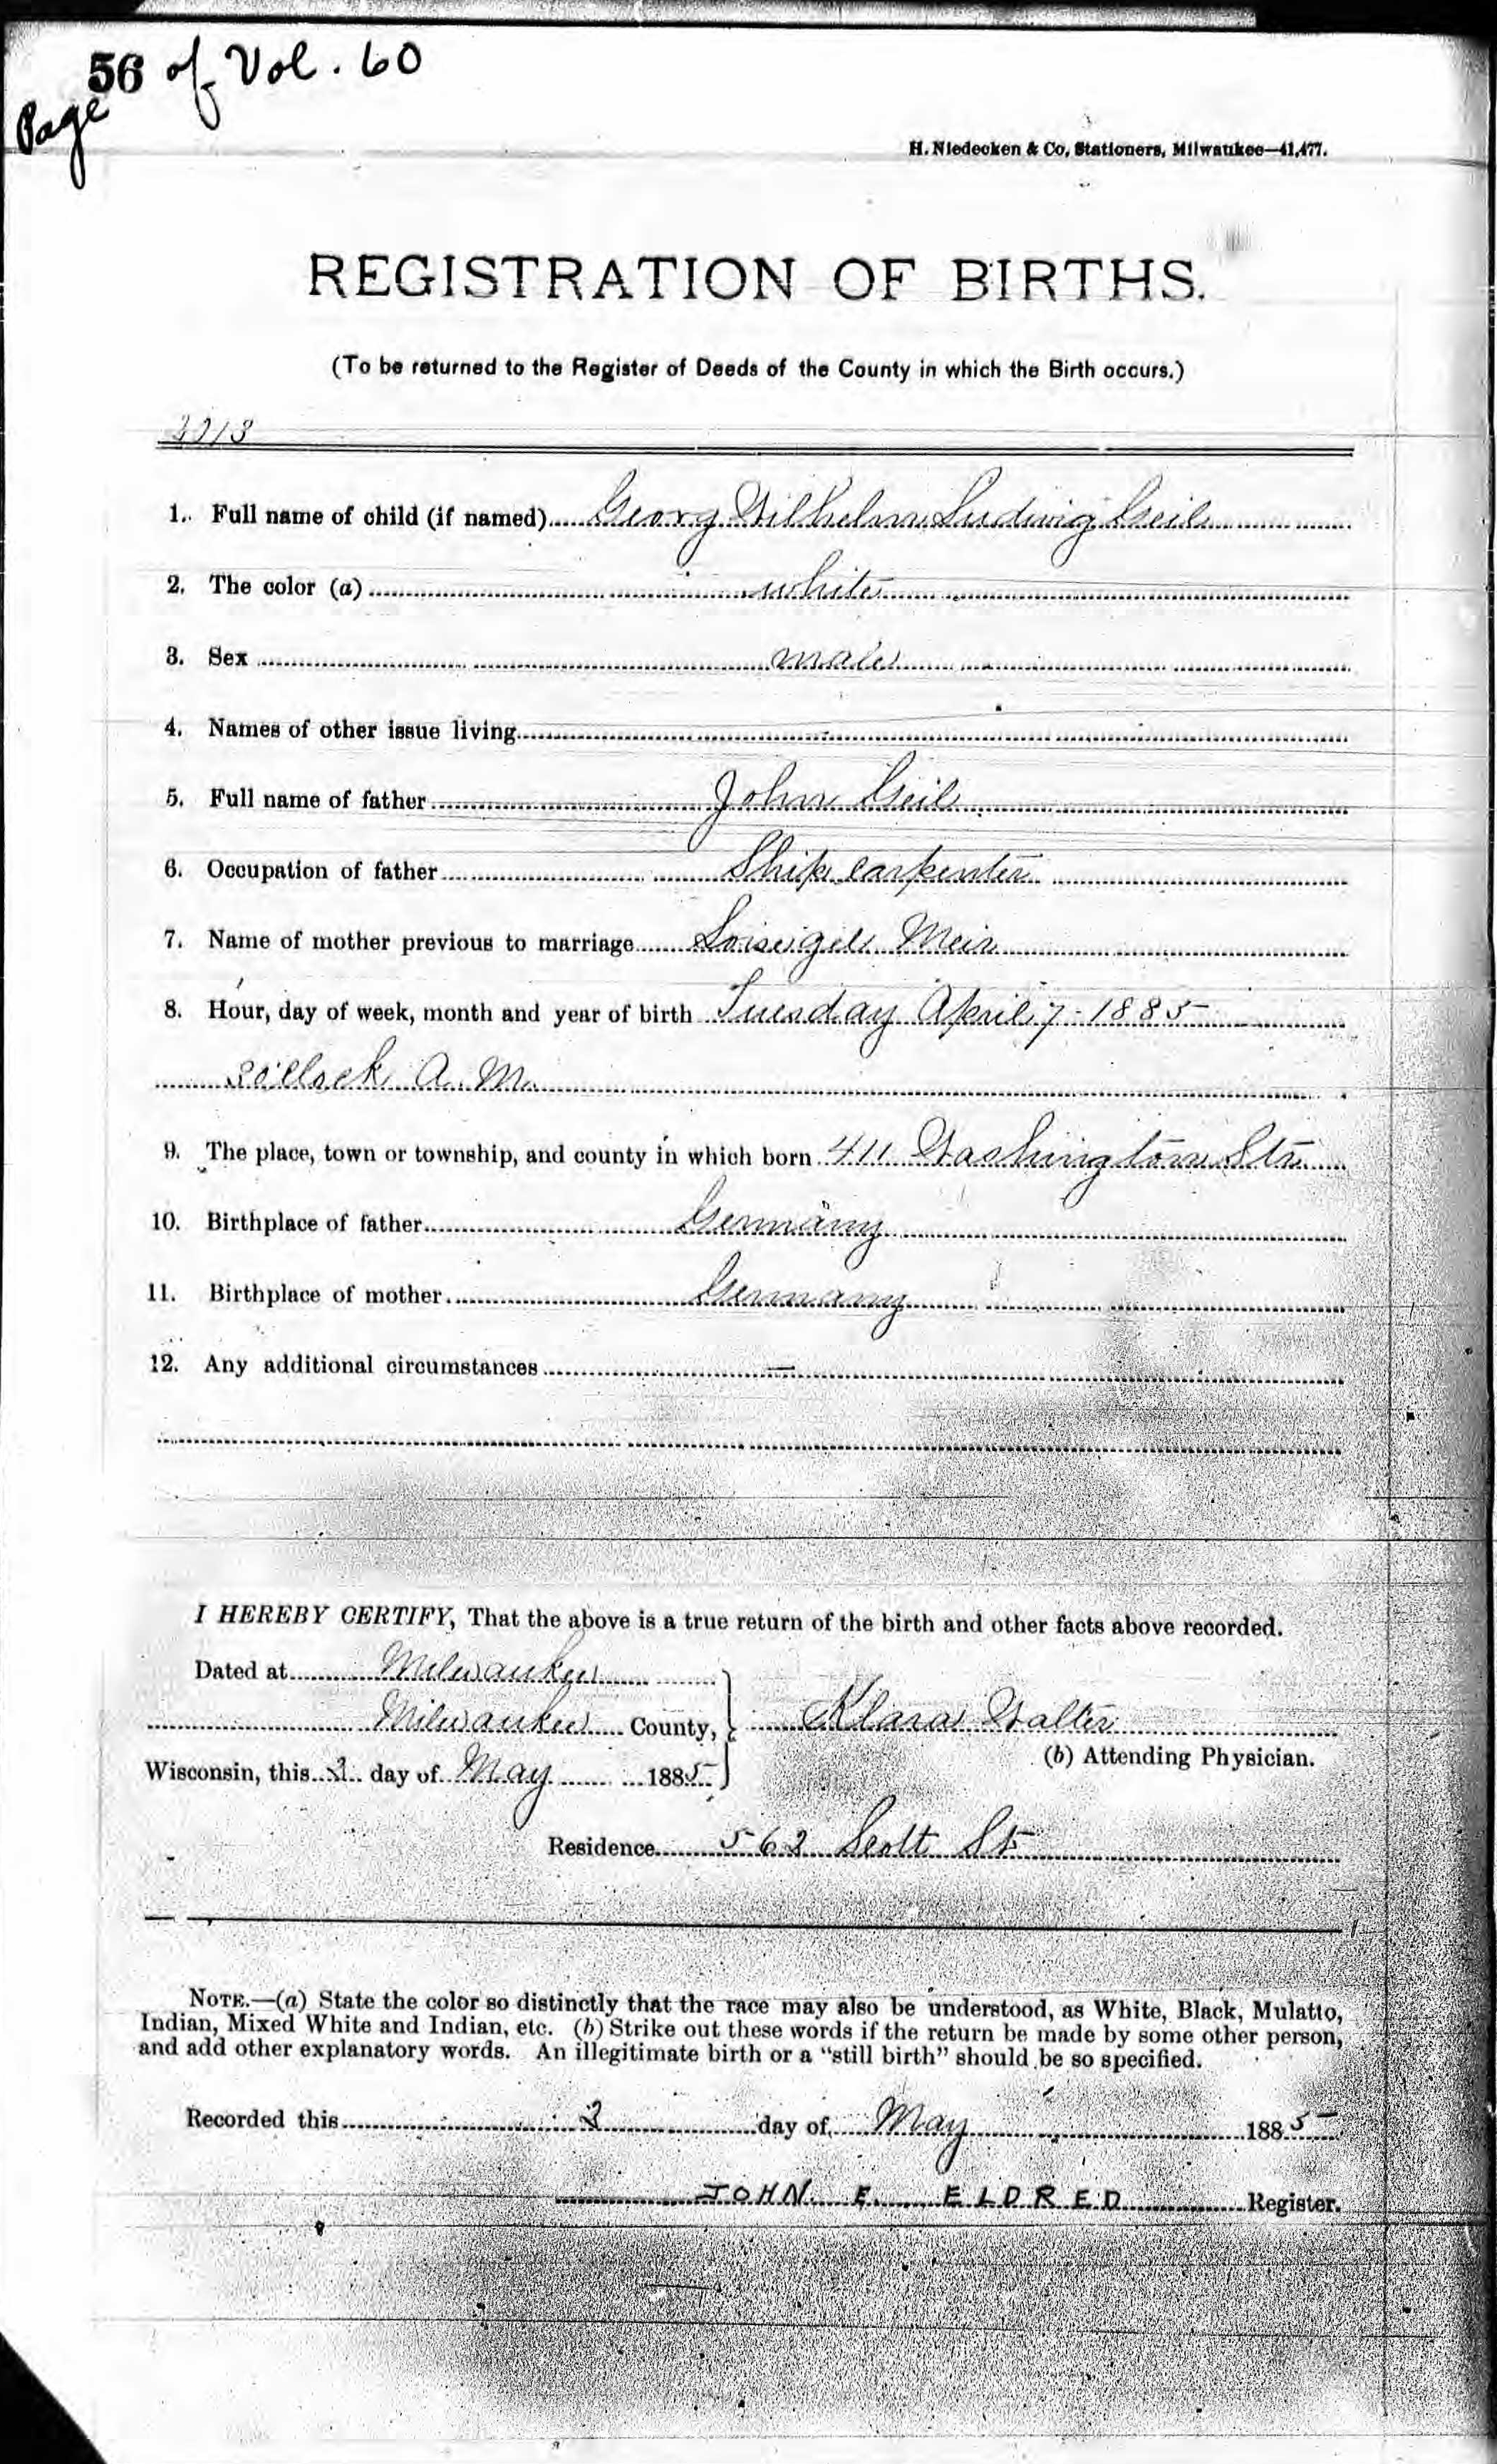 Page 56 of Vol. 60
H. Niedecken & Co, Stationers, Milwaukee—41,477.
REGISTRATION OF BIRTHS.
(To be returned to the Register of Deeds of the County in which the Birth occurs.)
1. Full name of child (if named) Georg Wilhelm Ludwig Geil
2. The color (a) white
3. Sex male
4. Names of other issue living
5. Full name of father John Geil
6. Occupation of father Ship carpenter
7. Name of mother previous to marriage Meir
8. Hour, day of week, month and year of birth Tuesday April 7 - 1885
o'clock A. M.
9. The place, town or township, and county in which born 411 Washington Str.
10. Birthplace of father Germany
11. Birthplace of mother Germany
12. Any additional circumstances —
I HEREBY CERTIFY, That the above is a true return of the birth and other facts above recorded.
Dated at Milwaukee
Milwaukee County,
Klara Walter
(b) Attending Physician.
Wisconsin, this day of May 1885
Residence Scott St
NOTE.—(a) State the color so distinctly that the race may also be understood, as White, Black, Mulatto,
Indian, Mixed White and Indian, etc. (b) Strike out these words if the return be made by some other person,
and add other explanatory words. An illegitimate birth or a "still birth" should be so specified.
Recorded this day of May 1885
JOHN E. ELDRED Register.